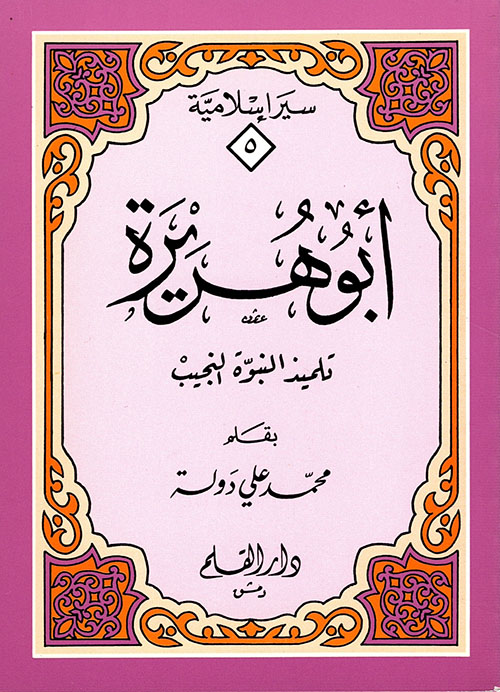 سير إسلامية
٥
أبو هريرة
تلميذ النبوّة النجيب
بقلم
محمّد علي دولة
دار القلم
دمشق